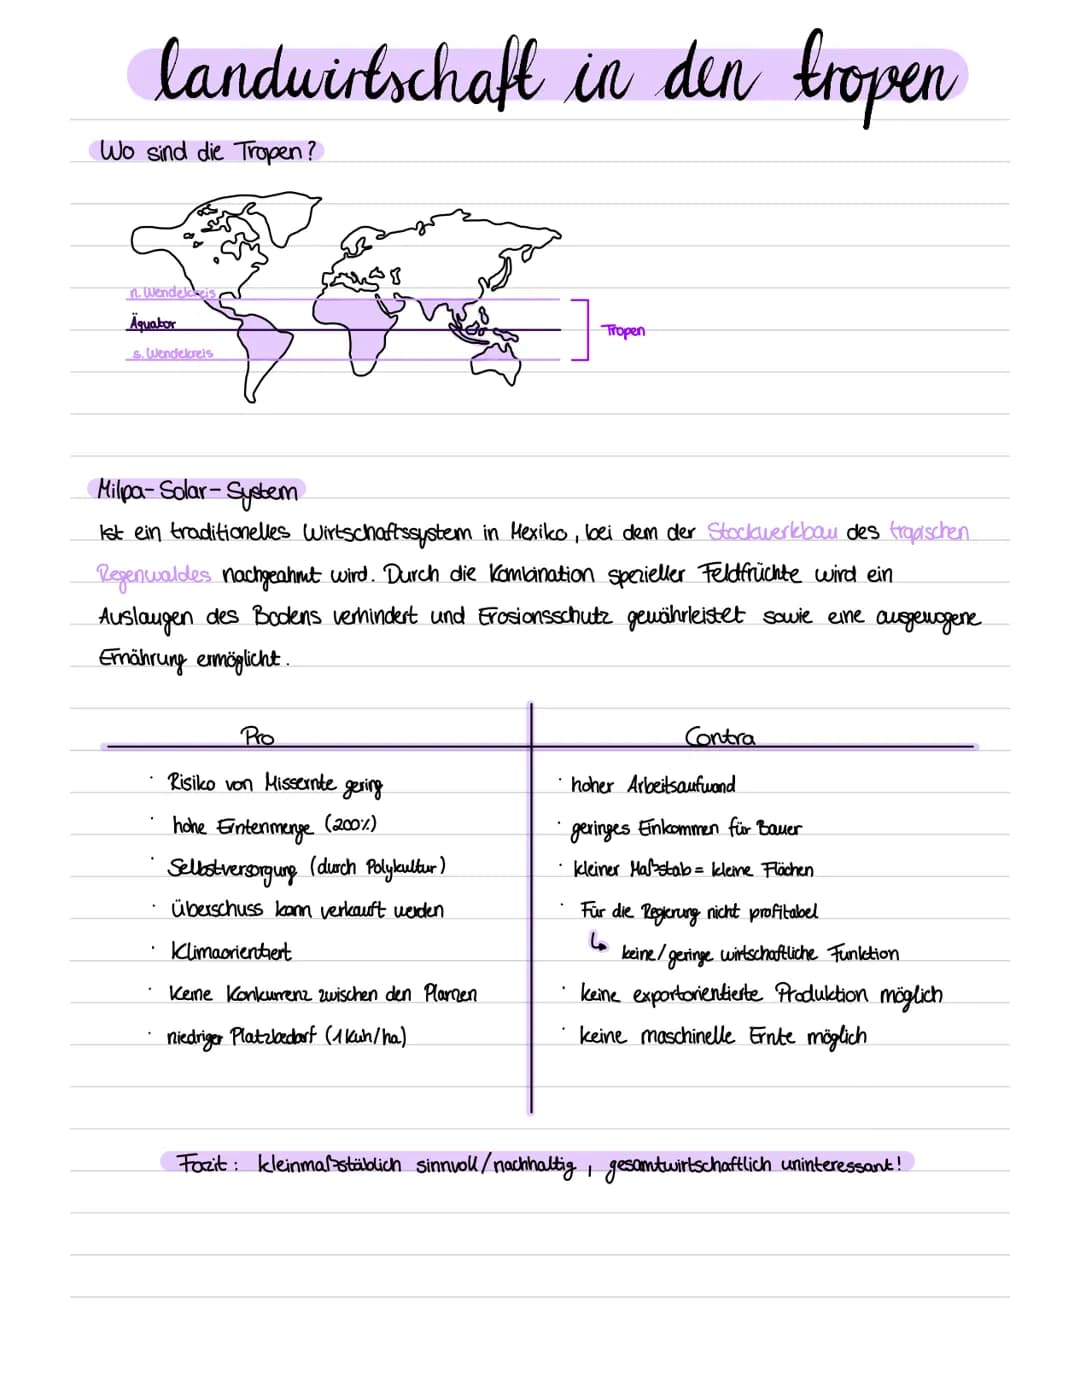 landwirtschaft in den tropen
Wo sind die Tropen?
n. Wendekreis
Äquator
s. Wendekreis
Tropen
Milpa-Solar-System
Ist ein traditionelles Wirtschaftssystem in Mexiko, bei dem der Stockwerkbau des tropischen
Regenwaldes nachgeahmt wird. Durch die Kombination spezieller Feldfrüchte wird ein
Auslaugen des Bodens verhindert und Erosionsschutz gewährleistet sowie eine ausgewogene
Ernährung ermöglicht.
Pro
· Risiko von Missernte gering
· hohe Erntenmenge (200%)
· Selbstversorgung (durch Polykultur)
· Überschuss kann verkauft werden
· Klimaorientiert
· Keine Konkurrenz zwischen den Planzen
· niedriger Platzbedarf (1 Kuh/ha)
Contra
· hoher Arbeitsaufwand
· geringes Einkommen für Bauer
· kleiner Maßstab = kleine Flächen
· Für die Regierung nicht profitabel
↳ keine/geringe wirtschaftliche Funktion
· keine exportorientierte Produktion möglich
· keine maschinelle Ernte möglich
Fazit: kleinmaßstäblich sinnvoll/nachhaltig, gesamtwirtschaftlich uninteressant!